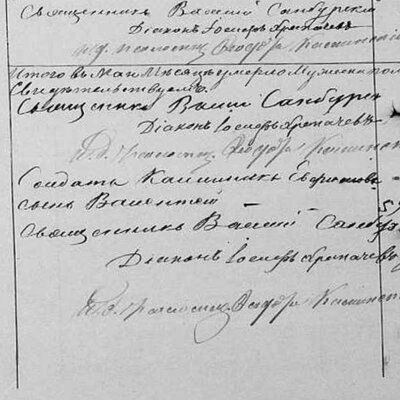 Священникъ Василій Самбурскій
Діаконъ Іосифъ Хропачевъ
И. д. псаломщ. Ѳеодоръ Каминскій
Итого въ Маѣ Мѣсяцѣ умерло Мужеска пол
Свидѣтельствуемъ
Священникъ Василій Самбурск
Діаконъ Іосифъ Хропачевъ
И. д. псаломщ. Ѳеодоръ Каминск
Солдата Каллиника
сынъ Валентій
Священникъ Василій Самбур
Діаконъ Іосифъ Хропачевъ
И. д. псаломщ. Ѳеодоръ Каминск